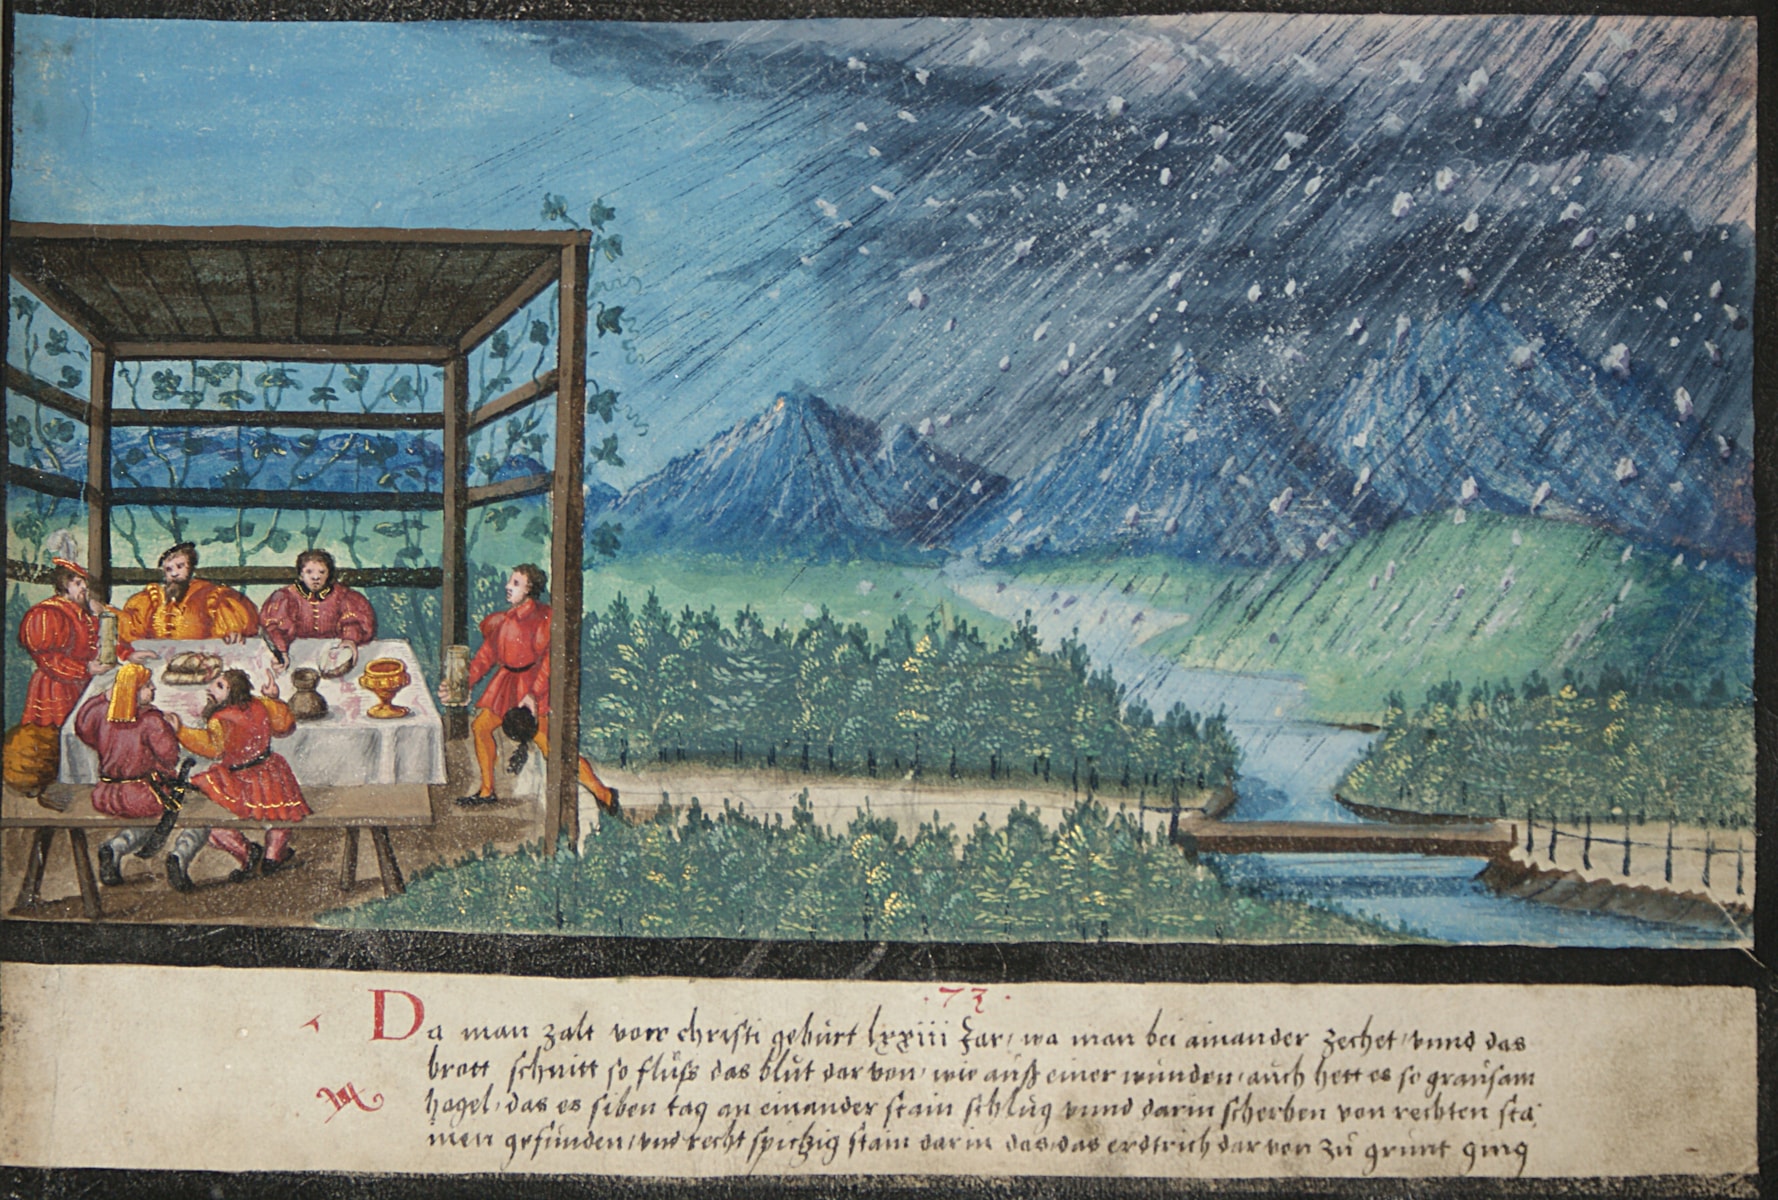 ·73·
Da man zalt vorr christi gebürt lxxiii Jar, wa man bei ainander zechet, unnd das
brott schnitt so flüss das blüt dar von, wie auß einer wünden, auch hett es so graüsam
hagel, das es siben tag an einander stain schlüg vnnd darin scherben von rechten stai
nen gefünden, vnd recht spietzig stain darin das, das erdtrich dar von zü grünt ging